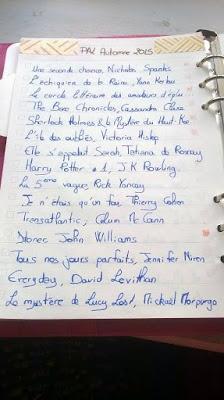 PAL Automne 2015
Une seconde chance, Nicholas Sparks
L'échiquier de la Reine, Yann Kerlau
Le cercle littéraire des amateurs d'éplu..
The Bane Chronicles, Cassandra Clare
Sherlock Holmes & le Mystère du Haut-Ko..
L'île des oubliés, Victoria Hislop
Elle s'appelait Sarah, Tatiana de Rosnay
Harry Potter #1, J.K Rowling.
La 5ème vague, Rick Yancey
Je n'étais qu'un fou, Thierry Cohen
Transatlantic, Colum McCann
Stoner, John Williams
Tous nos jours parfaits, Jennifer Niven
Everyday, David Levithan
Le mystère de Lucy Lost, Mickaël Morpurgo